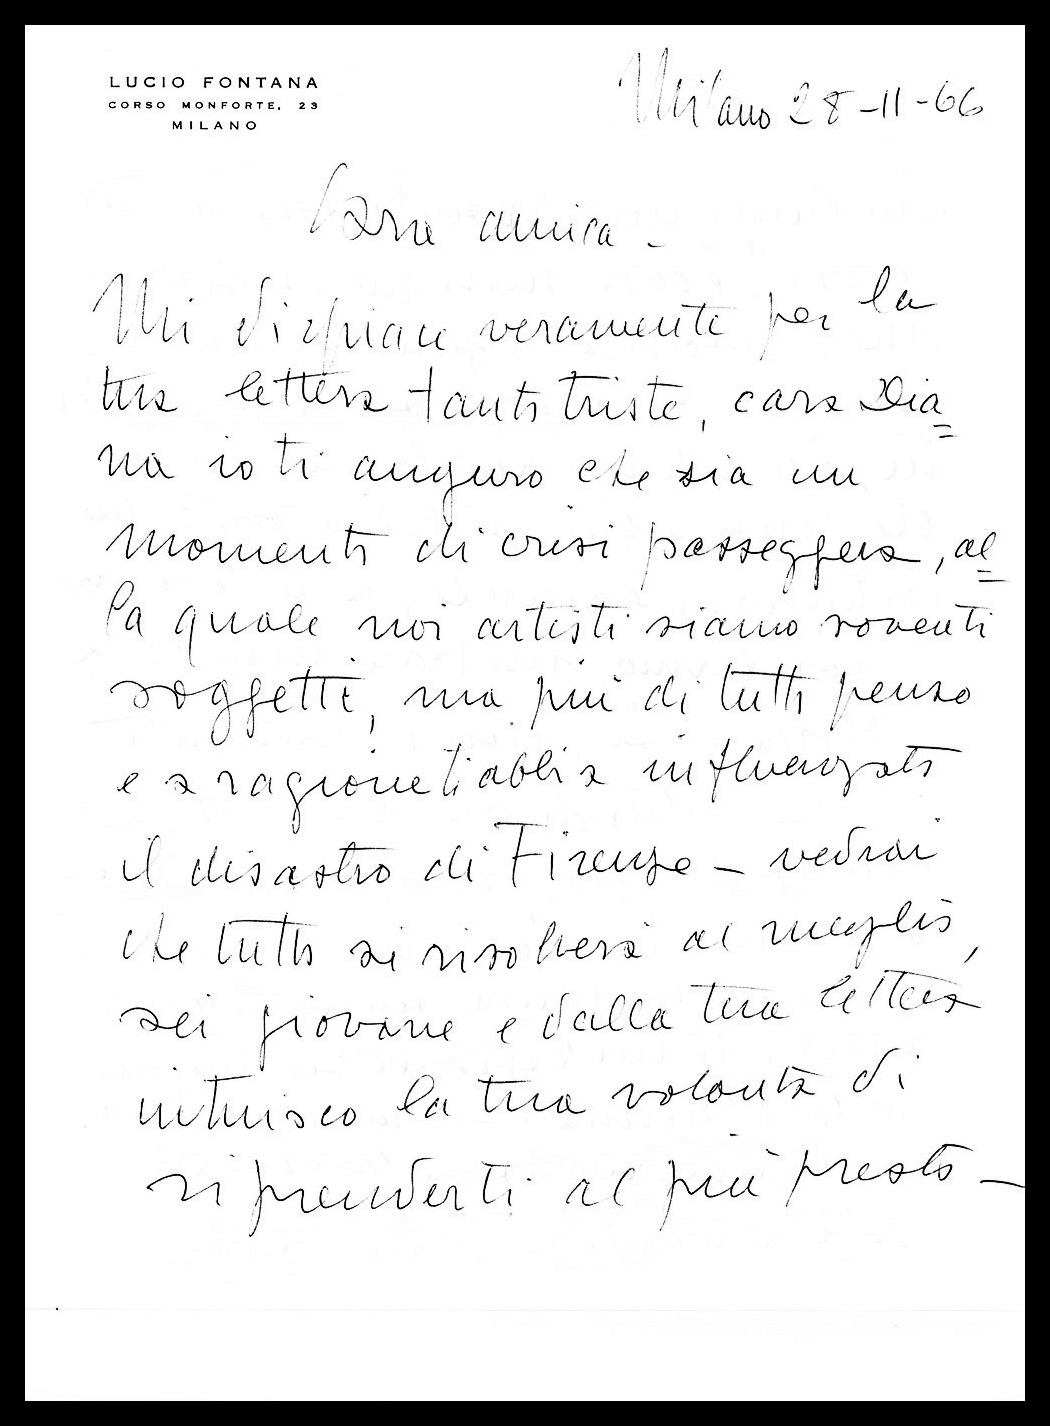 LUCIO FONTANA
CORSO MONFORTE, 23
MILANO
Milano 28-11-66
Cara amica -
Mi dispiace veramente per la
tua lettera tanto triste, cara Dia=
na io ti auguro che sia un
momento di crisi passeggera, al=
la quale noi artisti siamo soventi
soggetti, ma più di tutto penso
e a ragione ti abbia influenzato
il disastro di Firenze - vedrai
che tutto si risolverà al meglio,
sei giovane e dalla tua lettera
intuisco la tua volontà di
riprenderti al più presto -